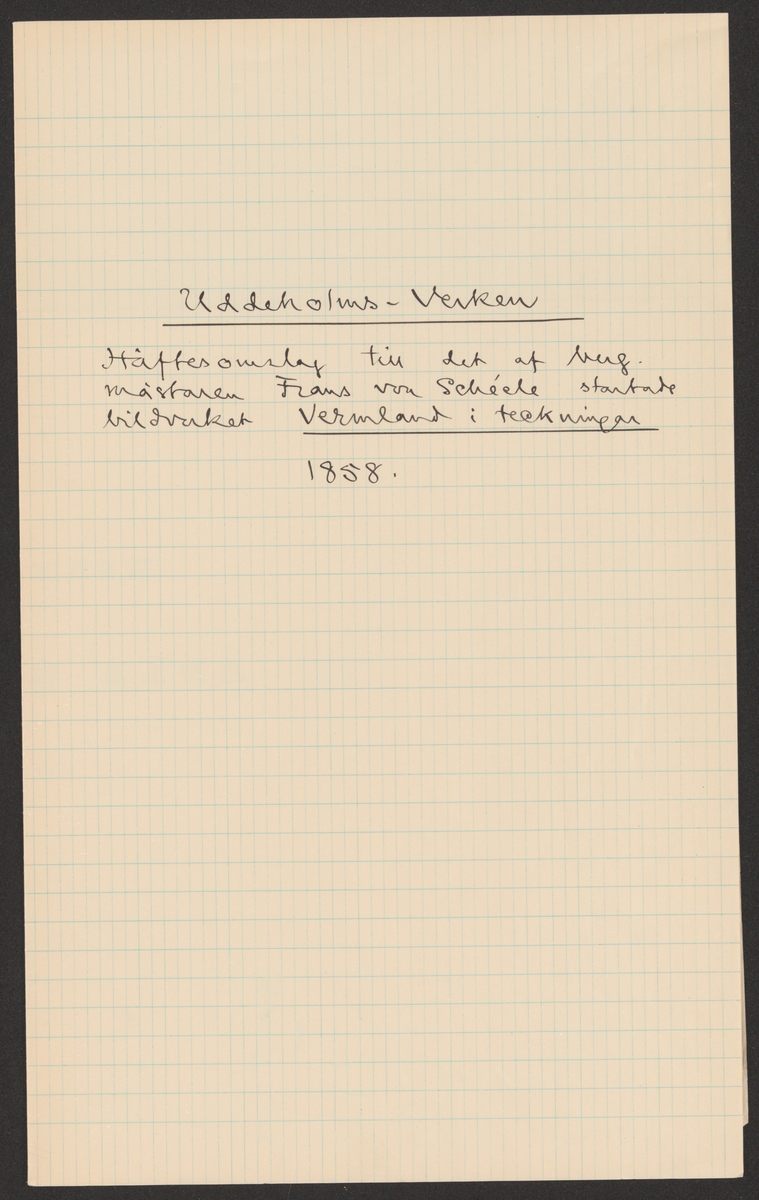 Uddeholms-Verken
Häftesomslag till det af berg-
mästaren Frans von Schéele startade
bildverket Vermland i teckningar
1858.